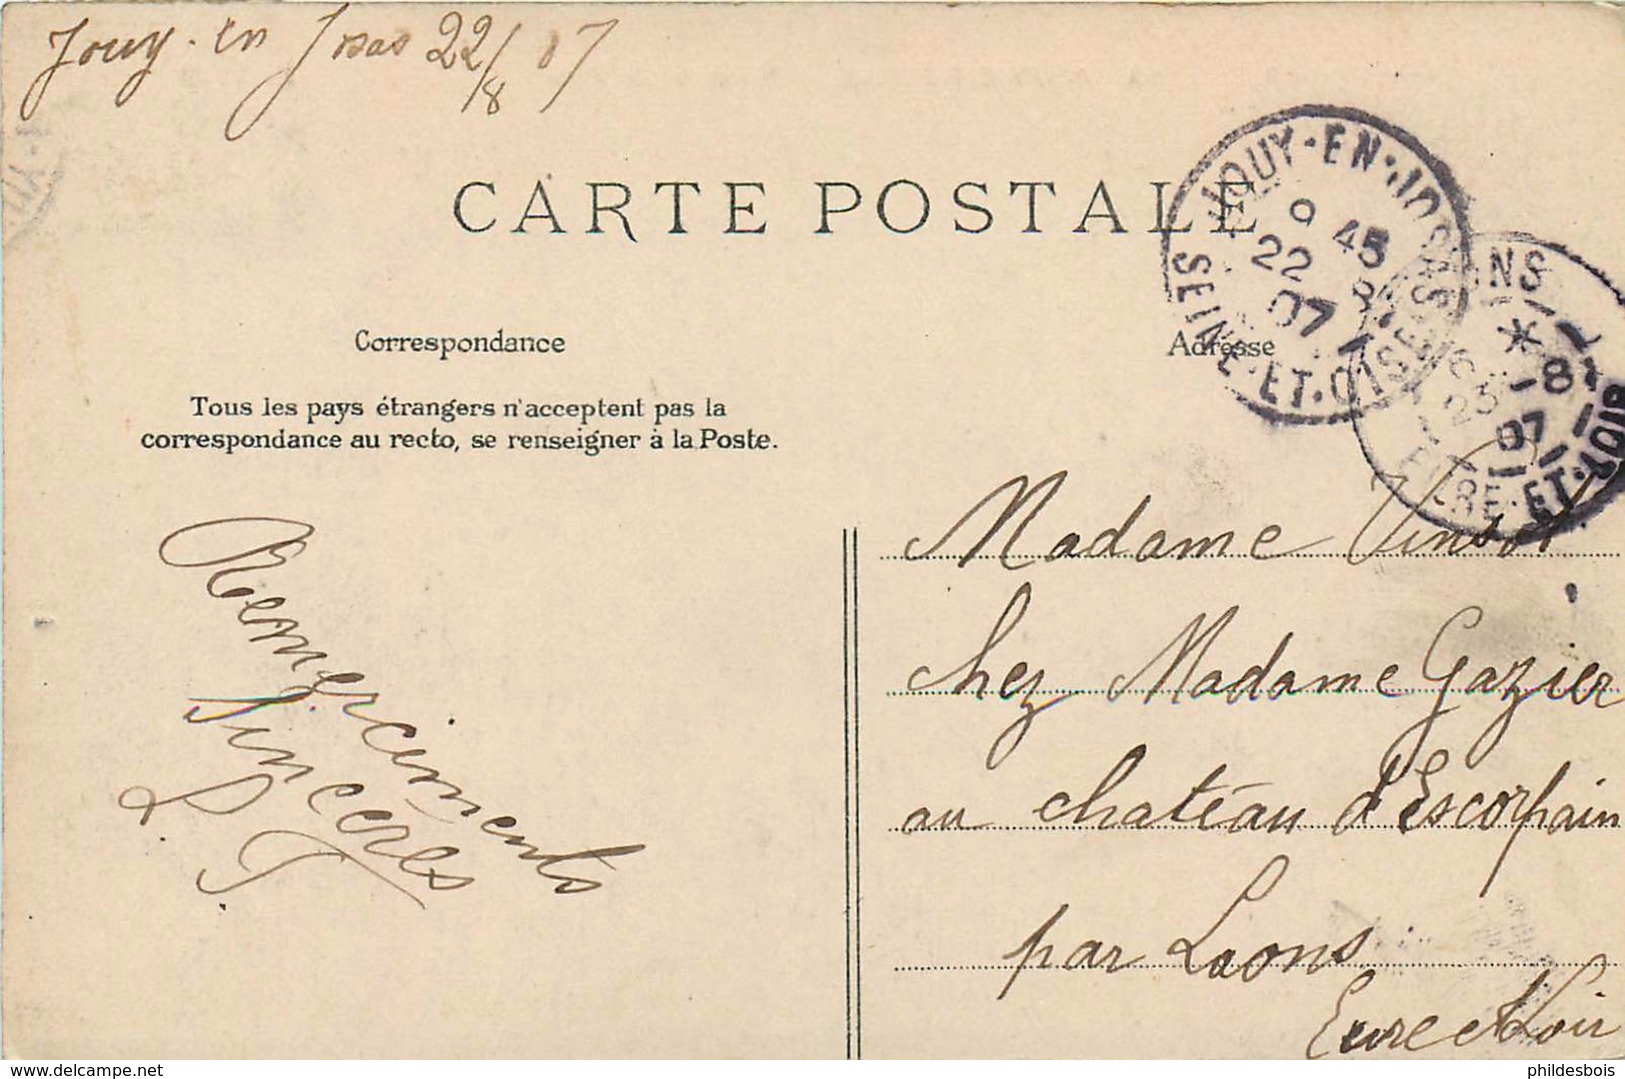 Jouy-en Josas 22/8 07
CARTE POSTALE
JOUY-EN-JOSAS
9 45
22 8
07
SEINE-ET-OISE
NS
*
23 -8
07
EURE-ET-LOIR
Correspondance
Adresse
Tous les pays étrangers n'acceptent pas la
correspondance au recto, se renseigner à la Poste.
Remerciements
Sincères
Madame
chez Madame Gazier
au chateau d'Escorpain
par Laons
Eure et Loir
www.delcampe.net
phildesbois